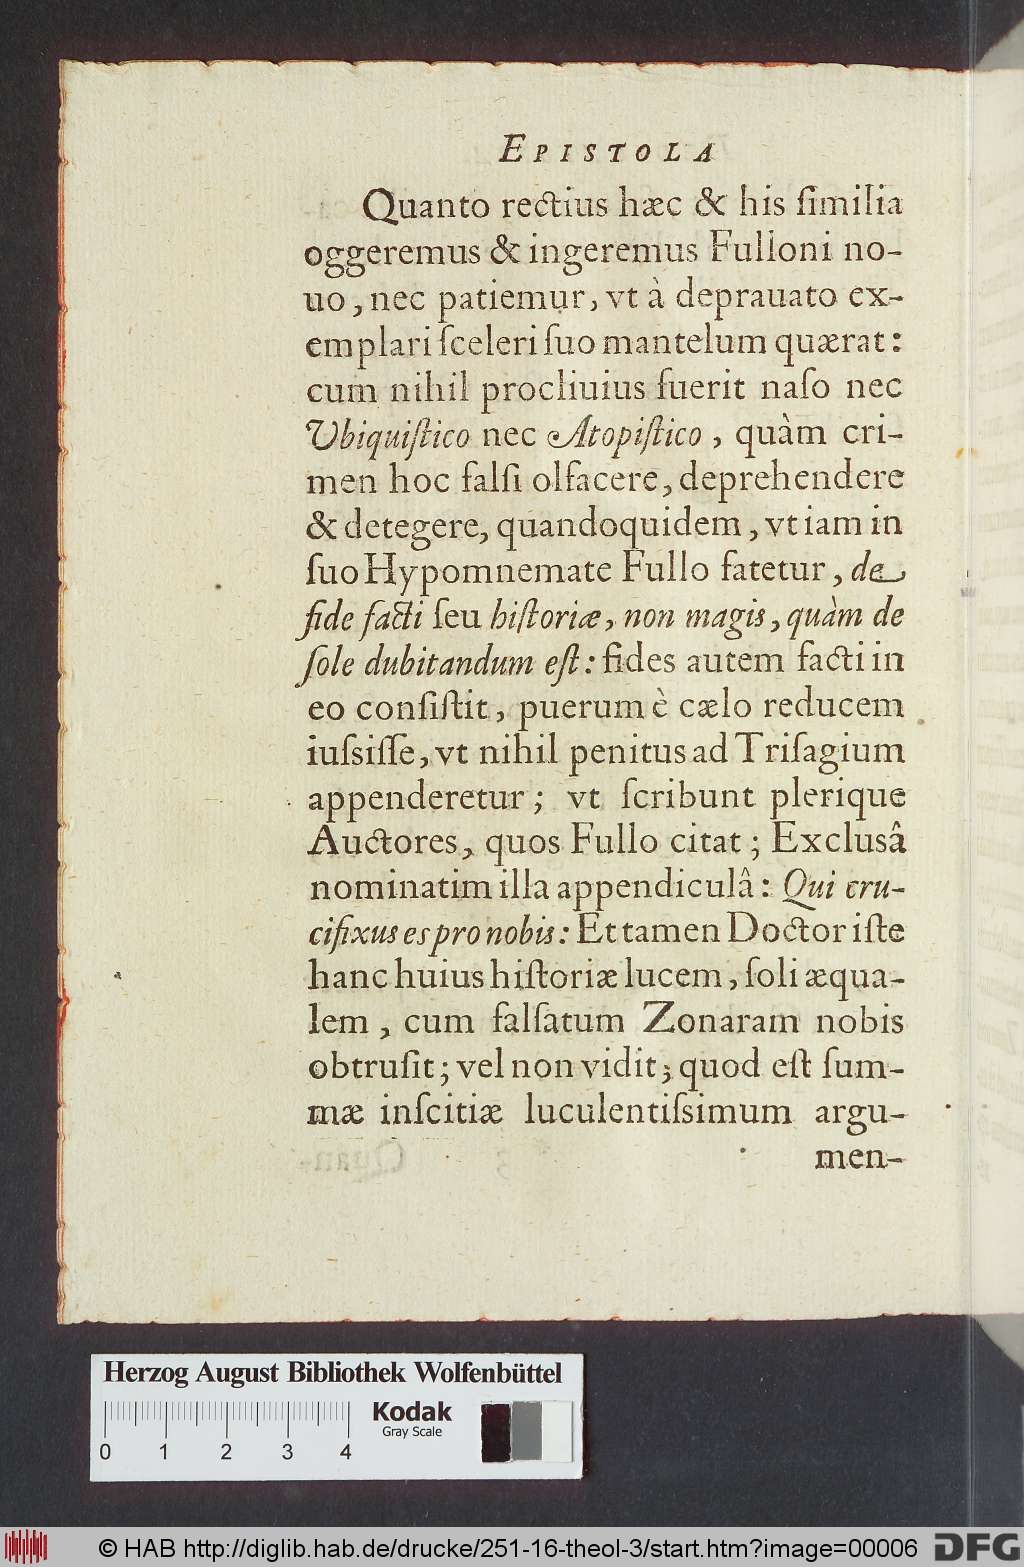 EPISTOLA
Quanto rectius hæc & his ſimilia
oggeremus & ingeremus Fulloni no-
uo, nec patiemur, vt à deprauato ex-
emplari ſceleri ſuo mantelum quærat:
cum nihil procliuius fuerit naſo nec
Vbiquiſtico nec Atopiſtico, quàm cri-
men hoc falſi olfacere, deprehendere
& detegere, quandoquidem, vt iam in
ſuo Hypomnemate Fullo fatetur, de
fide facti ſeu hiſtoriæ, non magis, quàm de
ſole dubitandum eſt: fides autem facti in
eo conſiſtit, puerum è cælo reducem
iuſsiſſe, vt nihil penitus ad Triſagium
appenderetur; vt ſcribunt plerique
Auctores, quos Fullo citat; Exclusâ
nominatim illa appendiculâ: Qui cru-
cifixus es pro nobis: Et tamen Doctor iſte
hanc huius hiſtoriæ lucem, ſoli æqua-
lem, cum falſatum Zonaram nobis
obtruſit; vel non vidit; quod eſt ſum-
mæ inſcitiæ luculentiſsimum argu-
men-
Herzog August Bibliothek Wolfenbüttel
Kodak
Gray Scale
0 1 2 3 4
© HAB http://diglib.hab.de/drucke/251-16-theol-3/start.htm?image=00006
DFG